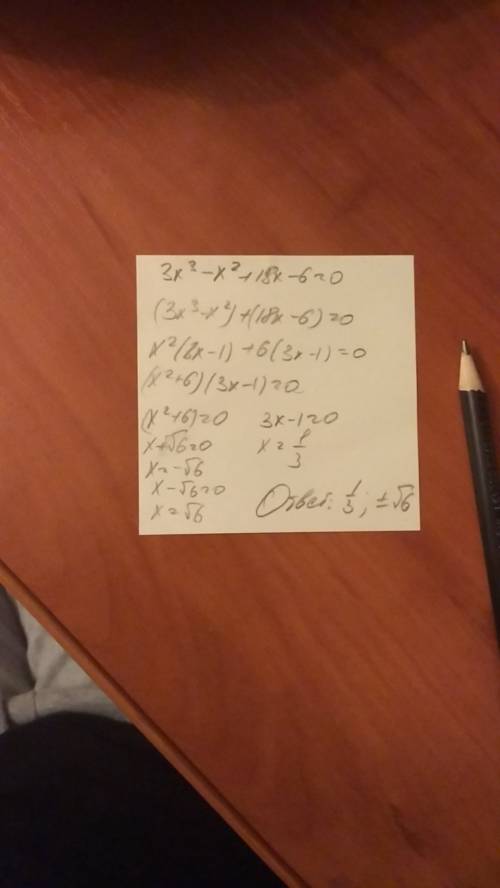 3x³-x²+18x-6=0
(3x³-x²)+(18x-6)=0
x²(3x-1)+6(3x-1)=0
(x²+6)(3x-1)=0
(x²+6)=0 3x-1=0
x+√6=0 x=1/3
x=-√6
x-√6=0
x=√6 Ответ: 1/3; ±√6